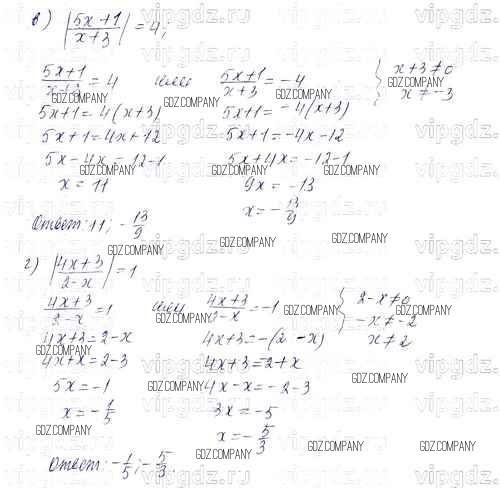 в) |5x+1/x+3| = 4;
5x+1/x+3 = 4 или 5x+1/x+3 = -4 { x+3≠0
5x+1 = 4(x+3) 5x+1 = -4(x+3) x≠-3
5x+1 = 4x+12 5x+1 = -4x-12
5x-4x = 12-1 5x+4x = -12-1
x = 11 9x = -13
x = -13/9
Ответ: 11; -13/9
г) |4x+3/2-x| = 1
4x+3/2-x = 1 или 4x+3/2-x = -1 { 2-x≠0
4x+3 = 2-x 4x+3 = -(2-x) -x≠-2
4x+x = 2-3 4x+3 = -2+x x≠2
5x = -1 4x-x = -2-3
x = -1/5 3x = -5
x = -5/3
Ответ: -1/5; -5/3.
vipgdz.ru
GDZ.COMPANY